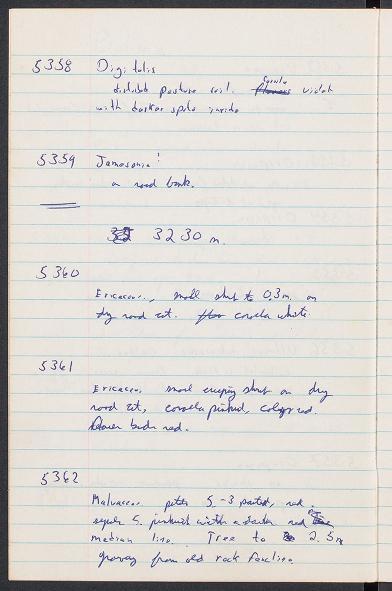 5358 Digitalis
disturb pasture soil. corolla violet
with darker spots inside
5359 Jamesonia!
on road bank.
3230 m.
5360
Ericaceae, small shrub to 0.3m. on
dry road cut. corolla white.
5361
Ericaceae, small creeping shrub on dry
road cut, corolla pinkred, calyx red.
flower buds red.
5362
Malvaceae. petals 5. -3 parted, red.
sepals 5. pinkish with a darker red
median line. Tree to 2.5m
growing from old rock